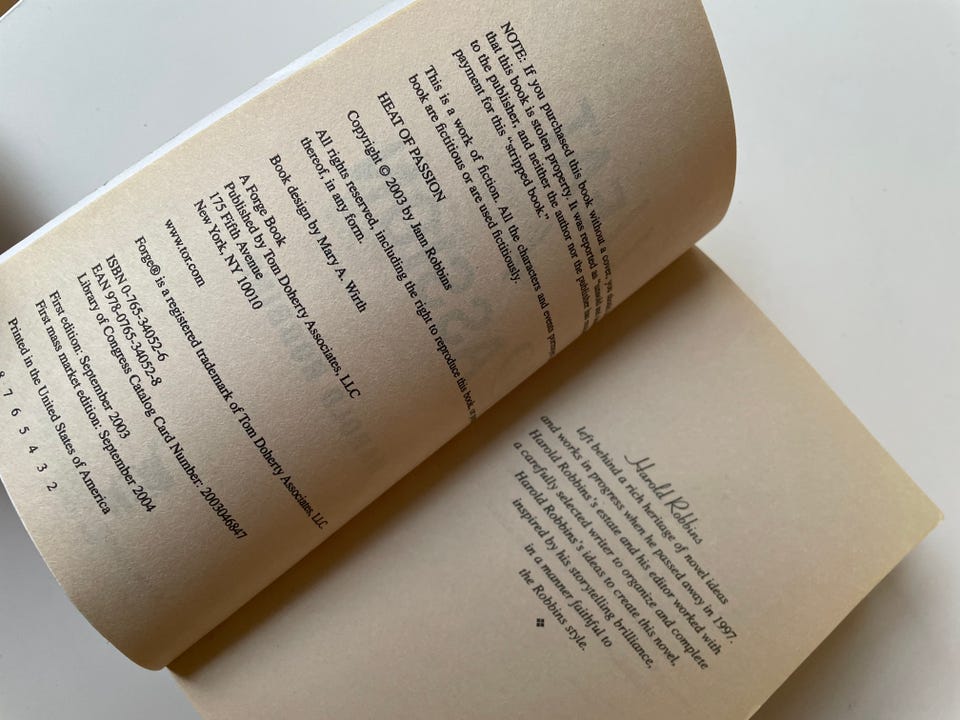 NOTE: If you purchased this book without a cover, you
that this book is stolen property. It was reported as
to the publisher, and neither the author nor the publisher has
payment for this "stripped book."
This is a work of fiction. All the characters and events
book are fictitious or are used fictitiously.
HEAT OF PASSION
Copyright © 2003 by Jann Robbins
All rights reserved, including the right to reproduce this book,
thereof, in any form.
Book design by Mary A. Wirth
A Forge Book
Published by Tom Doherty Associates, LLC
175 Fifth Avenue
New York, NY 10010
www.tor.com
Forge® is a registered trademark of Tom Doherty Associates, LLC.
ISBN 0-765-34052-6
EAN 978-0765-34052-8
Library of Congress Catalog Card Number: 2003046847
First edition: September 2003
First mass market edition: September 2004
Printed in the United States of America
8 7 6 5 4 3 2
Harold Robbins
left behind a rich heritage of novel ideas
and works in progress when he passed away in 1997.
Harold Robbins's estate and his editor worked with
a carefully selected writer to organize and complete
Harold Robbins's ideas to create this novel,
inspired by his storytelling brilliance,
in a manner faithful to
the Robbins style.